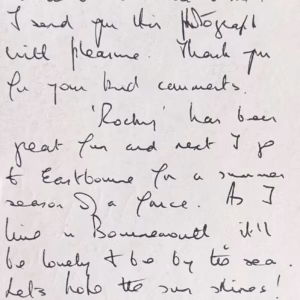 I send you this photograph
with pleasure. Thank you
for your kind comments.
'Rocky' has been
great fun and next I go
to Eastbourne for a summer
season of a farce. As I
live in Bournemouth it'll
be lovely to be by the sea.
Let's hope the sun shines!